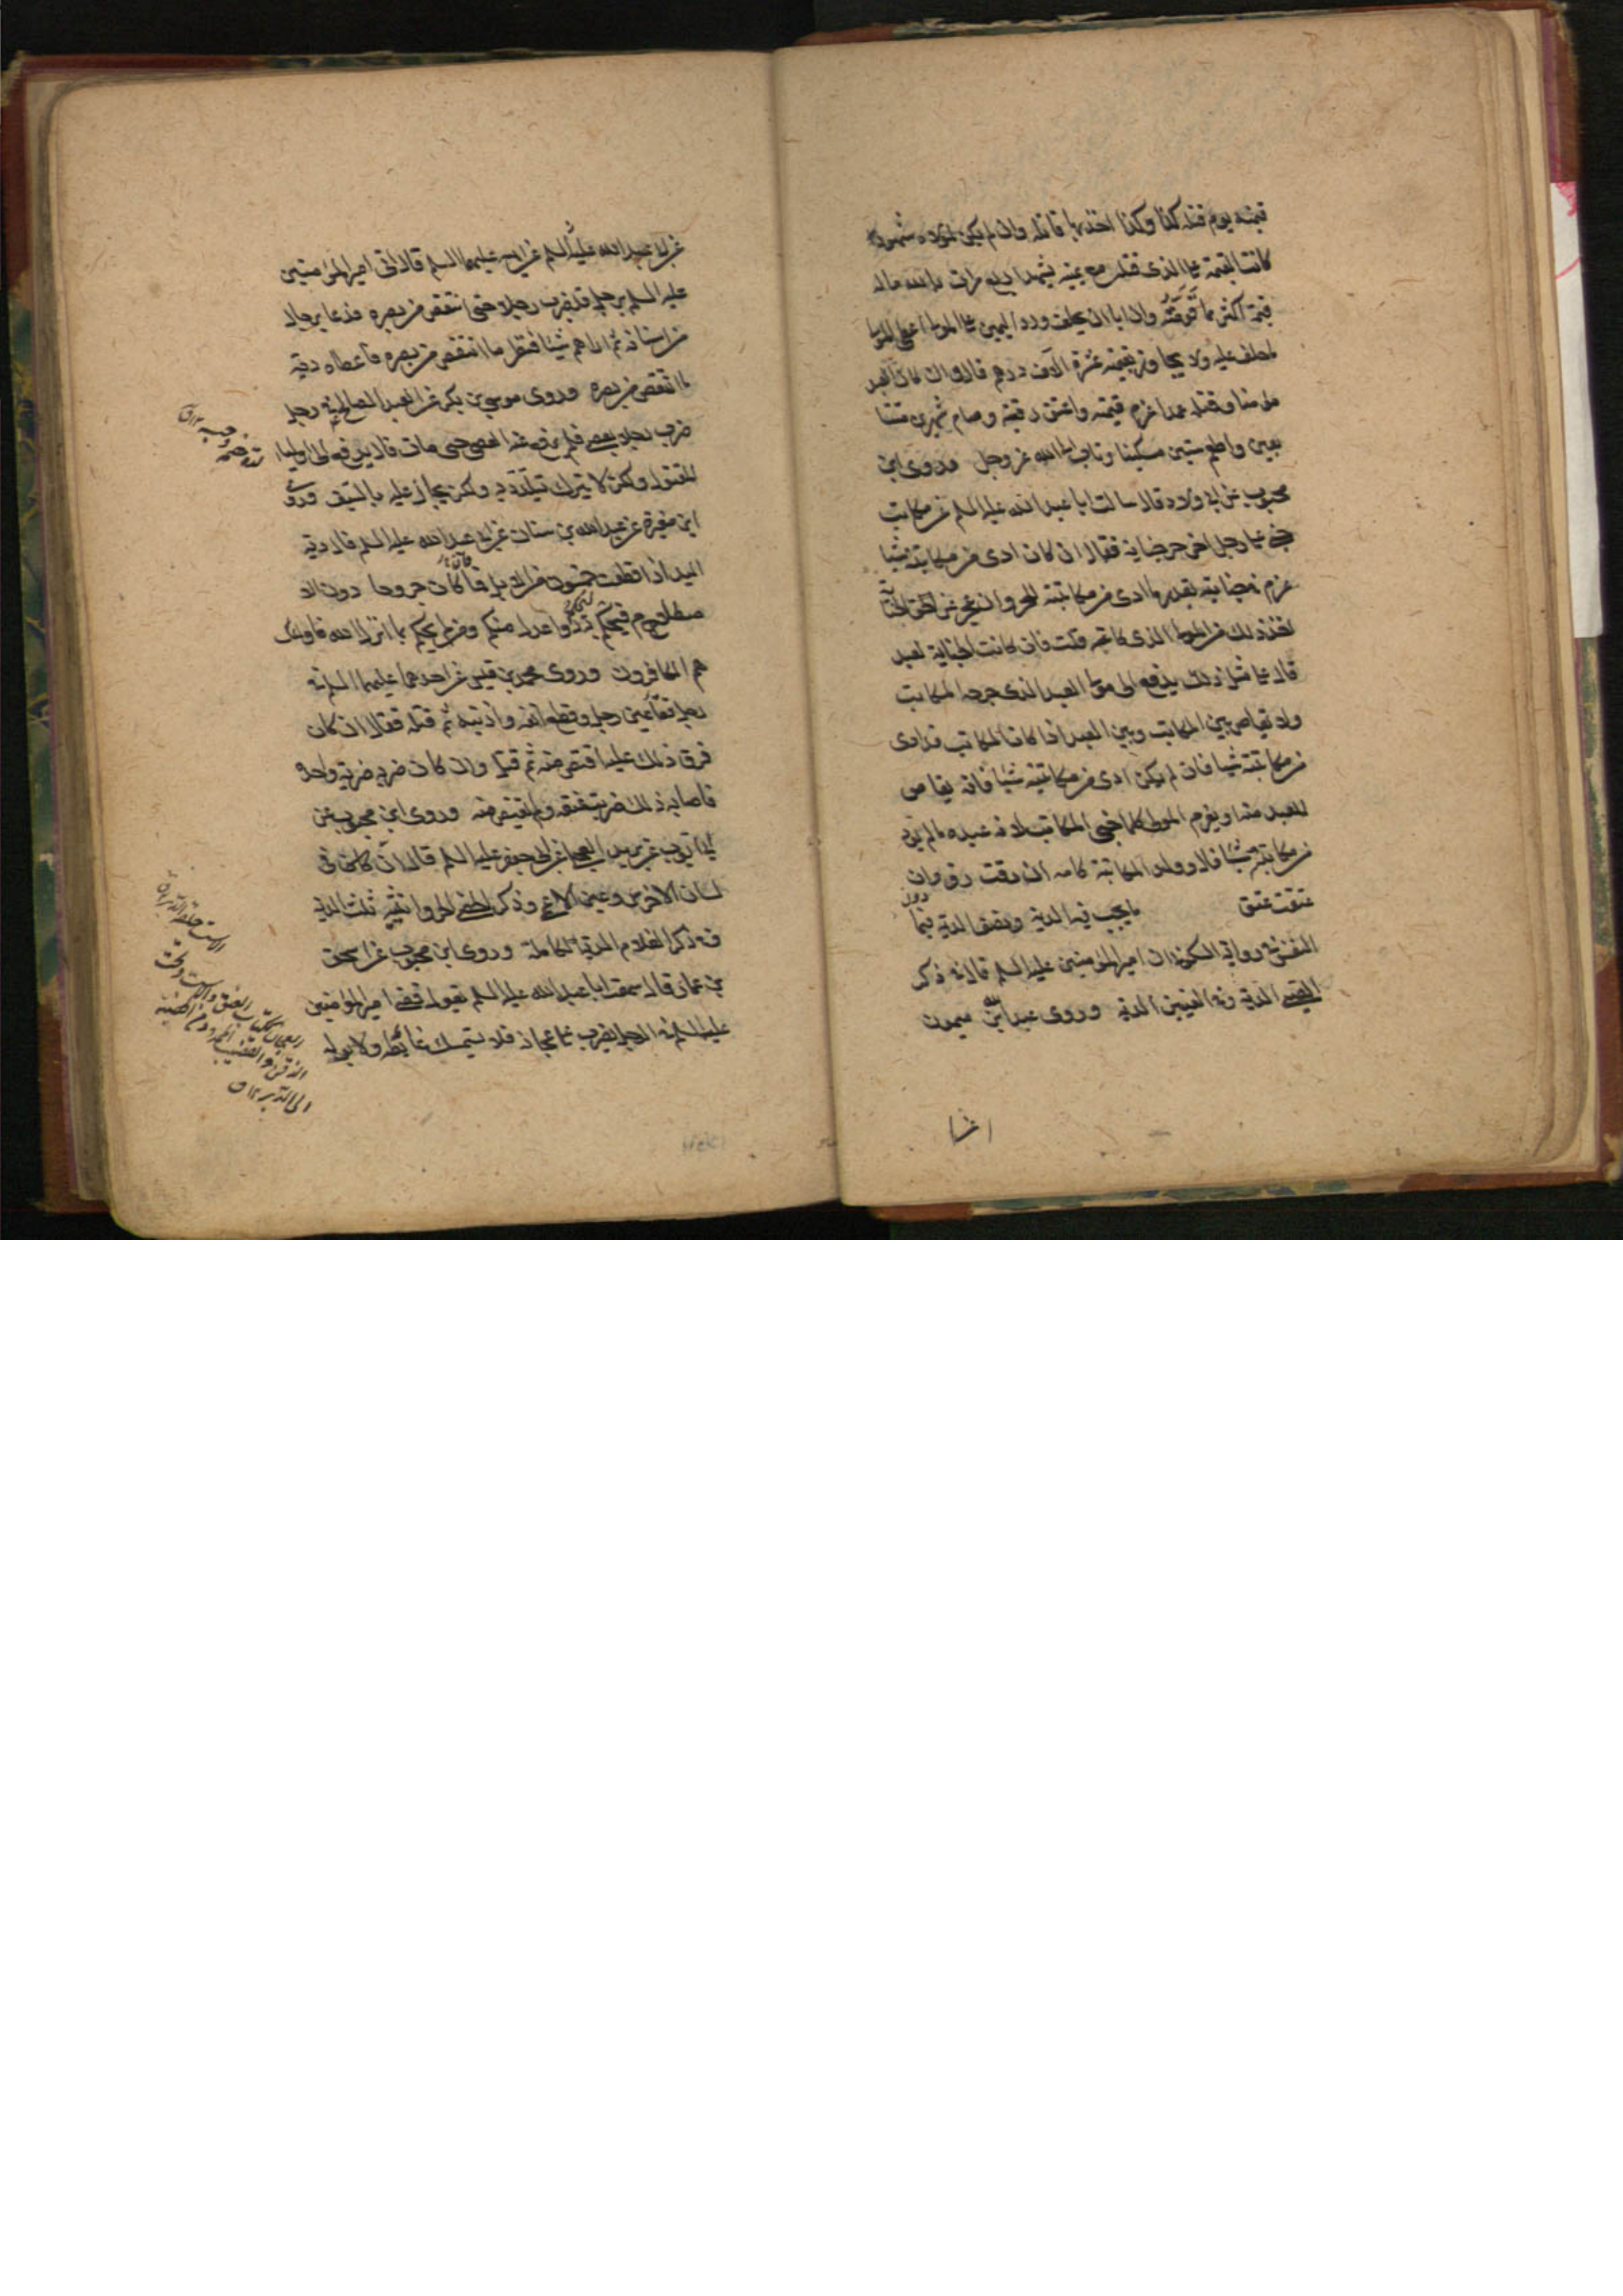 قيمته يوم قتله كذا وكذا اخذ بها قاتله وان لم يكن لمولاه شهود
كانت القيمة على الذى قتله مع يمينه يشهد اربع مرات بالله ماله
قيمة اكثر مما قومته وان ابا ان يحلف ورد اليمين على المولى اعطى المولى
ما حلف عليه ولا يجاوز بقيمته عشرة آلاف درهم قال وان كان العبد
مؤمنا وقتله عمدا غرم قيمته واعتق رقبة وصام شهرين متتا
بعين واطعم ستين مسكينا وتاب الى الله عز وجل وروى ابن
محبوب عن ابى ولاد قال سالت ابا عبد الله عليه السلم عن مكاتب
جنى على رجل اخر جناية فقال ان كان ادى من مكاتبته شيئا
غرم فى جنايته بقدر ما ادى من مكاتبته للحر وان عجز عن حق الجناية
اخذ ذلك من المولى الذى كاتبه قلت فان كانت الجناية لعبد
قال على مثل ذلك يدفع الى مولى العبد الذى جرحه المكاتب
ولا تقاص بين المكاتب وبين العبد اذا كان المكاتب قد ادى
من مكاتبته شيئا فان لم يكن ادى من مكاتبته شيئا فانه يقاص
للعبد منه او يغرم المولى كلما جنى المكاتب لانه عبده ما لم يؤد
من مكاتبته شيئا قال وولد المكاتبة كامه ان رقت رق وان
عتقت عتق ما يجب فيه الدية ونصف الدية فيما دون
النفس فى رواية السكونى ان امير المؤمنين عليه السلم قال فى ذكر
الصبى الدية وفى العنين الدية وروى عبد الله بن ميمون
عن ابى عبد الله عليه السلم عن ابيه عليهما السلم قال اتى امير المؤمنين
عليه السلم برجل قد ضرب رجلا حتى انتقص من بصره فدعا برجال
من اسنانه ثم اراهم شيئا فنظر ما انتقص من بصره فاعطاه دية
ما انتقص من بصره وروى موسى بن بكر عن العبد الصالح فى رجل
ضرب رجلا بعصى فلم يرفع عنه العصى حتى مات قال يدفع الى اولياء
المقتول ولكن لا يترك يتلذذ به ولكن يجاز عليه بالسيف وروى
ابن مغيرة عن عبد الله بن سنان عن ابى عبد الله عليه السلم قال دية
اليد اذا قطعت خمسون من الابل فما كان جروحا دون الا
صطلام فيحكم به ذوا عدل منكم ومن لم يحكم بما انزل الله فاولئك
هم الكافرون وروى محمد بن قيس عن احدهما عليهما السلم فى
رجل فقأ عين رجل وقطع انفه واذنيه ثم قتله فقال ان كان
فرق ذلك عليه اقتص منه ثم قتل وان كان ضربه ضربة واحدة
فاصابه ذلك ضربت عنقه ولم يقتص منه وروى ابن محبوب عن
ابى ايوب عن بريد العجلى عن ابى جعفر عليه السلم قال ان فى
لسان الاخرس وعين الاعمى وذكر الخصى الحر وانثييه ثلث الدية
فى ذكر الغلام الدية الكاملة وروى ابن محبوب عن اسحق
بن عمار قال سمعت ابا عبد الله عليه السلم يقول قضى امير المؤمنين
عليه السلم فى الرجل يضرب على عجانه فلا يستمسك غائطه ولا بوله